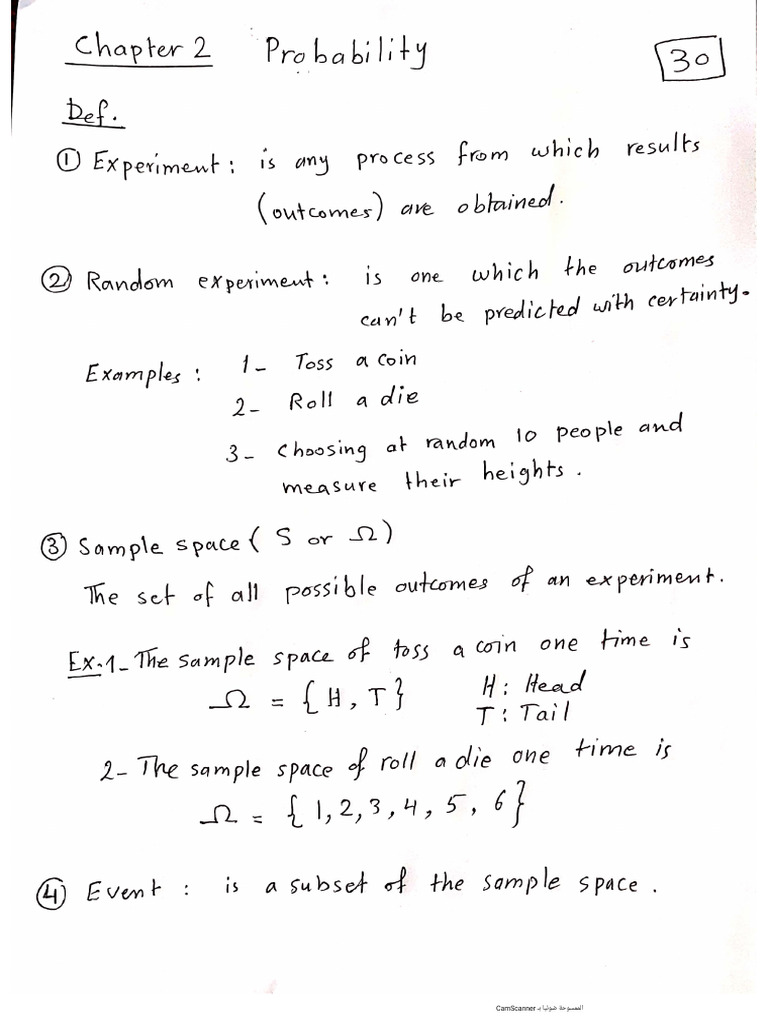 Chapter 2 Probability 30
Def.
① Experiment: is any process from which results
(outcomes) are obtained.
② Random experiment: is one which the outcomes
can't be predicted with certainty.
Examples: 1- Toss a coin
2- Roll a die
3- Choosing at random 10 people and
measure their heights.
③ Sample space ( S or Ω)
The set of all possible outcomes of an experiment.
Ex.1- The sample space of toss a coin one time is
Ω = {H, T} H: Head
T: Tail
2- The sample space of roll a die one time is
Ω = {1, 2, 3, 4, 5, 6}
④ Event: is a subset of the sample space.
الممسوحة ضوئيا بـ CamScanner